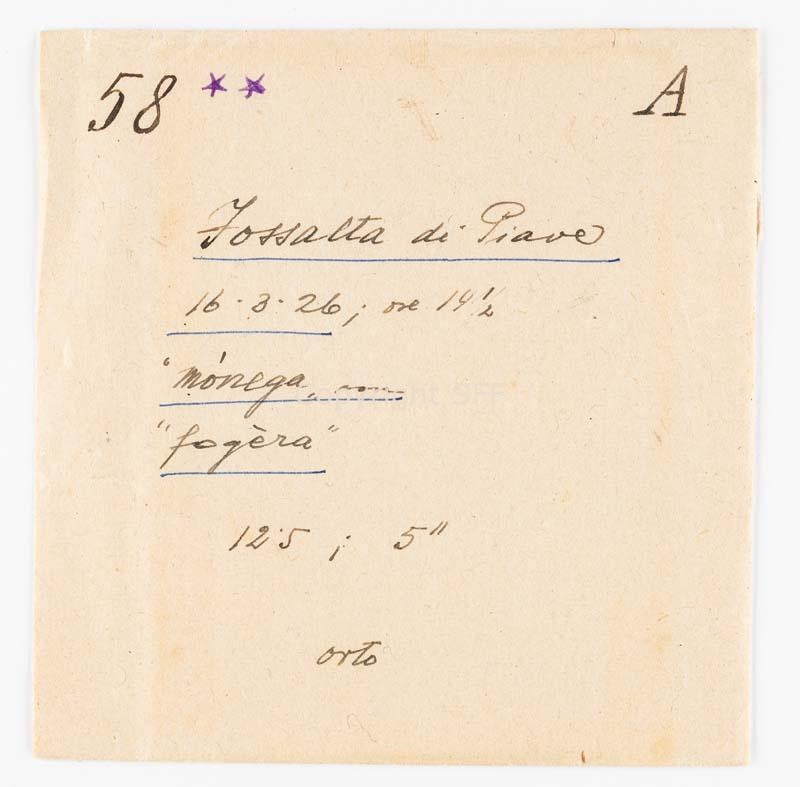 58 ** A
Fossalta di Piave
16·3·26; ore 14½
"mónega„ con
"fogèra"
12·5 ; 5"
orto